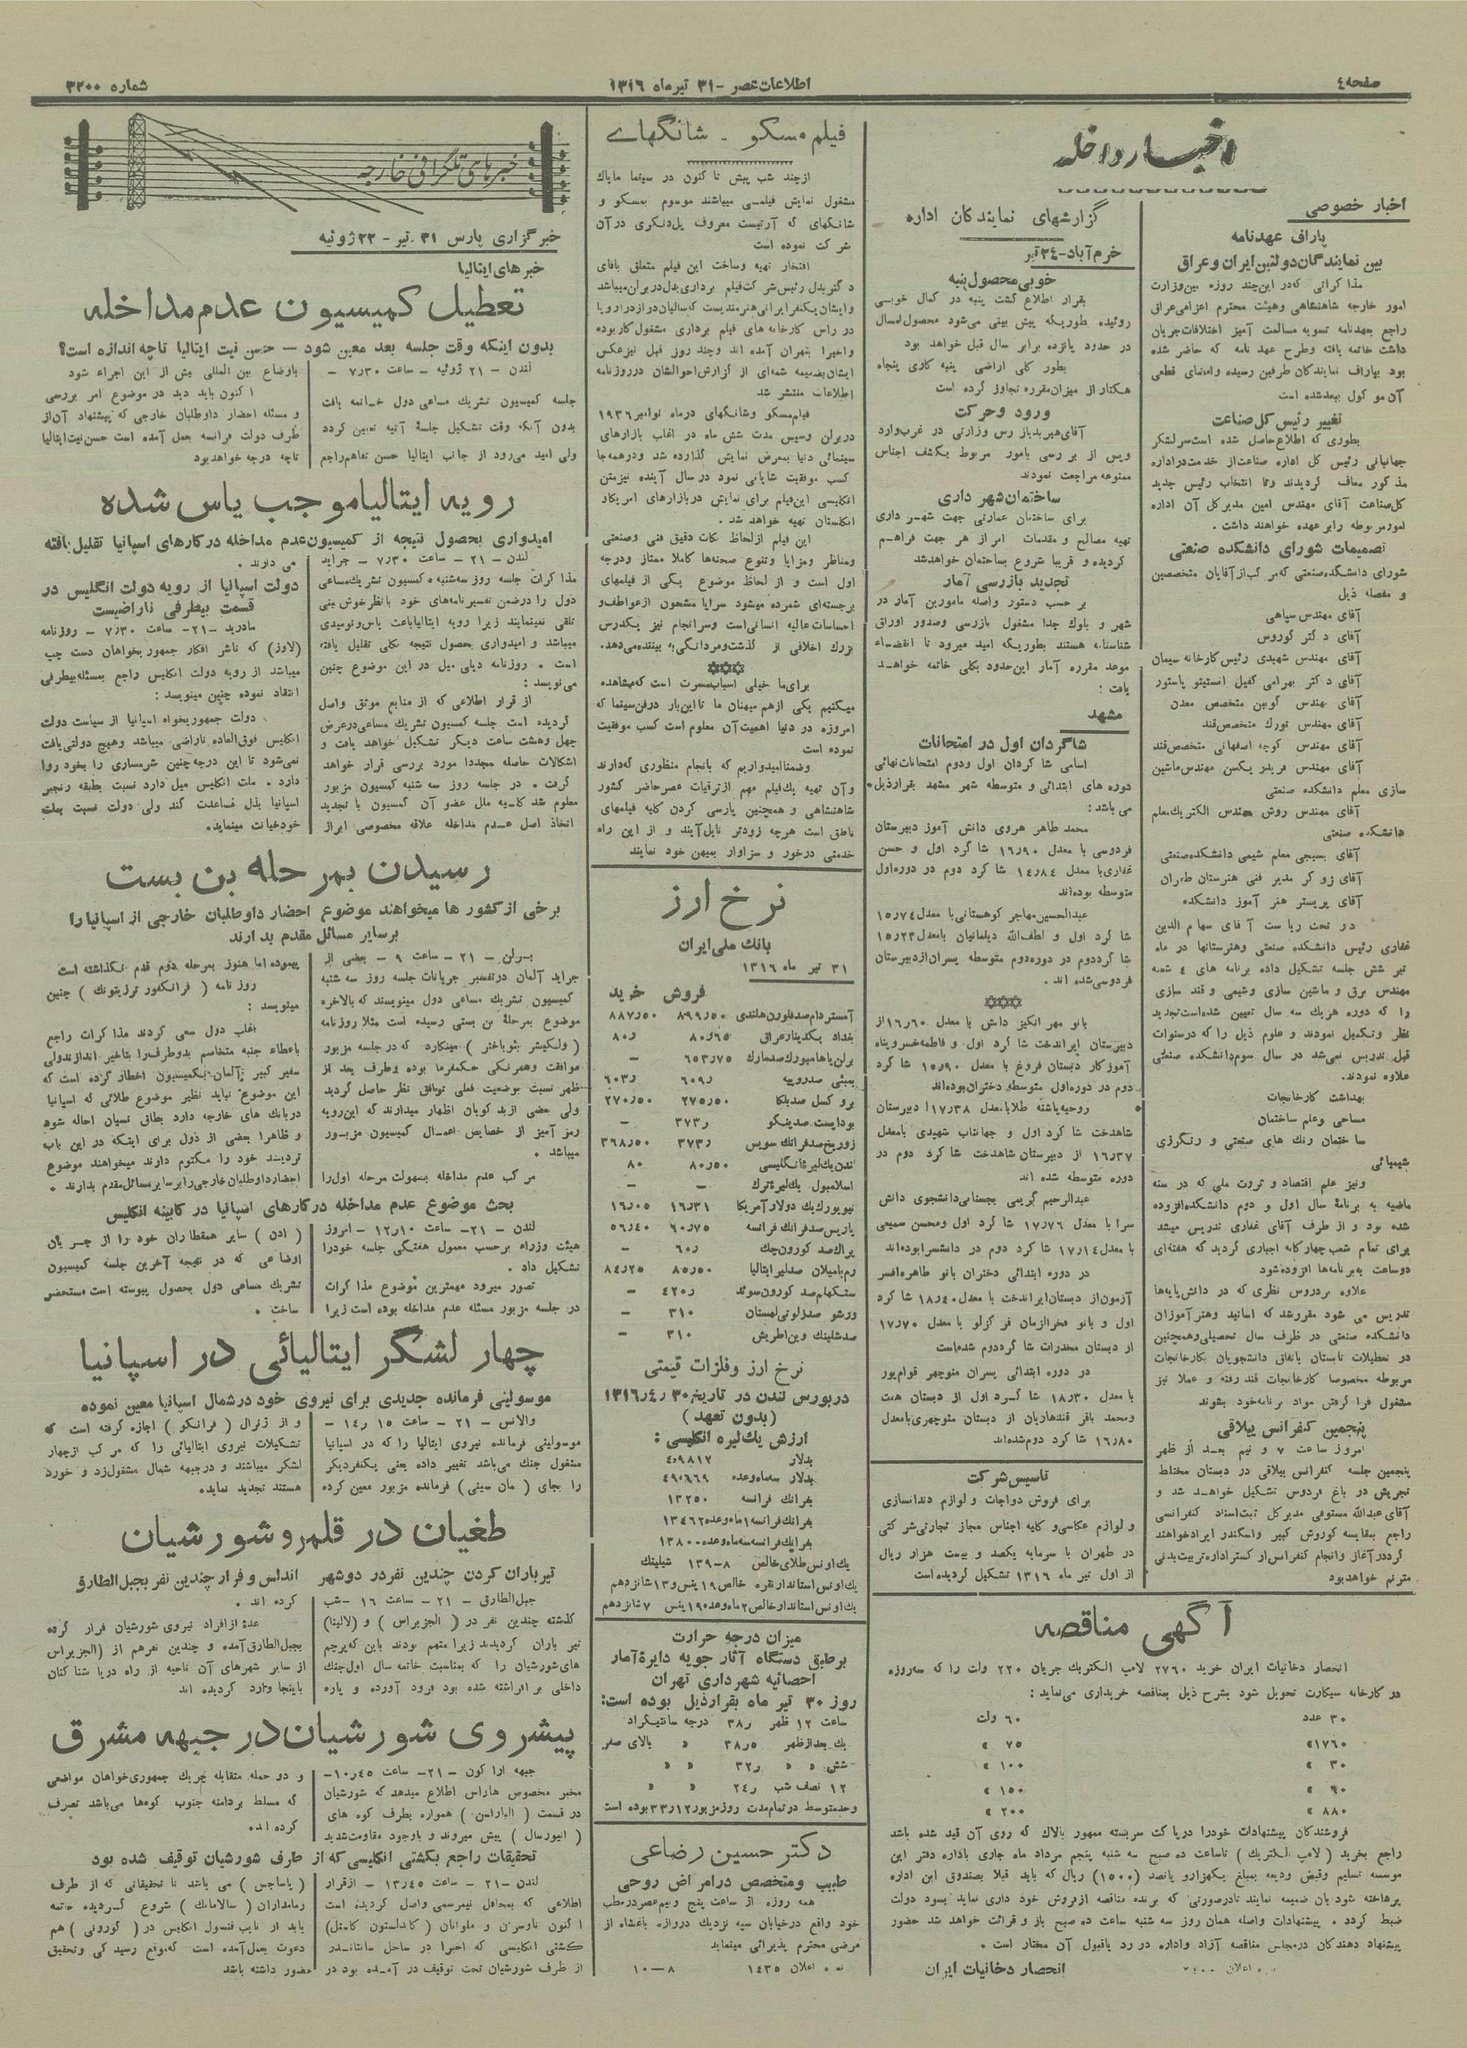 صفحه ٤
اطلاعات عصر - ٣١ تیرماه ١٣١٦
شماره ٣٢٠٠
اخبار داخله
اخبار خصوصی
پاراف عهدنامه
بین نمایندگان دولتین ایران و عراق
مذاکراتی که در این چند روزه بین وزارت
امور خارجه شاهنشاهی و هیئت محترم اعزامی عراق
راجع بعهدنامه تسویه مسالمت آمیز اختلافات جریان
داشت خاتمه یافته و طرح عهد نامه که حاضر شده
بود بپاراف نمایندگان طرفین رسیده و امضای قطعی
آن موکول ببعد شده است
تغییر رئیس کل صناعت
بطوری که اطلاع حاصل شده است سرلشگر
جهانبانی رئیس کل اداره صناعت از خدمت در اداره
مذکور معاف گردیدند و تا انتخاب رئیس جدید
کل صناعت آقای مهندس امین مدیر کل آن اداره
امور مربوطه را برعهده خواهند داشت .
تصمیمات شورای دانشکده صنعتی
شورای دانشکده صنعتی که مرکب از آقایان متخصصین
و مفصله ذیل
آقای مهندس سپاهی
آقای دکتر کوروس
آقای مهندس شهیدی رئیس کارخانه سیمان
آقای دکتر بهرامی کفیل انستیتو پاستور
آقای مهندس گوبین متخصص معدن
آقای مهندس تورک متخصص قند
آقای مهندس کوچه اصفهانی متخصص قند
آقای مهندس فریدر یکسن مهندس ماشین
سازی معلم دانشکده صنعتی
آقای مهندس روش مهندس الکتریک معلم
دانشکده صنعتی
آقای بسیجی معلم شیمی دانشکده صنعتی
آقای زوکر مدیر فنی هنرستان طهران
آقای پریستر هنر آموز دانشکده
در تحت ریاست آقای سهام الدین
غفاری رئیس دانشکده صنعتی و هنرستانها در ماه
تیر شش جلسه تشکیل داده برنامه های ٤ شعبه
مهندس برق و ماشین سازی و شیمی و قند سازی
را که دوره هریک سه سال تعیین شده است تجدید
نظر و تکمیل نمودند و علوم ذیل را که در سنوات
قبل تدریس نمی‌شد در سال سوم دانشکده صنعتی
علاوه نمودند.
بهداشت کارخانجات
مساحی و علم ساختمان
ساختمان رنگ های صنعتی و رنگرزی
شیمیائی
و نیز علم اقتصاد و ثروت ملی که در سنه
ماضیه به برنامهٔ سال اول و دوم دانشکده افزوده
شده بود و از طرف آقای غفاری تدریس میشد
برای تمام شعب چهارگانه اجباری گردید که هفته‌ای
دو ساعت به برنامه‌ها افزوده شود
علاوه بر دروس نظری که در دانش پایه‌ها
تدریس می شود مقرر شد که اساتید و هنرآموزان
دانشکده صنعتی در ظرف سال تحصیلی و همچنین
در تعطیلات تابستان باتفاق دانشجویان بکارخانجات
مربوطه مخصوصا کارخانجات قند رفته و عملا نیز
مشغول فرا گرفتن مواد برنامه خود بشوند
پنجمین کنفرانس ییلاقی
امروز ساعت ٧ و نیم بعد از ظهر
پنجمین جلسه کنفرانس ییلاقی در دبستان مختلط
تجریش در باغ فردوس تشکیل خواهد شد و
آقای عبدالله مستوفی مدیر کل ثبت اسناد کنفرانسی
راجع بمقایسه کوروش کبیر و اسکندر ایراد خواهند
کرد در آغاز و انجام کنفرانس ارکستر اداره تربیت بدنی
مترنم خواهد بود
گزارشهای نمایندگان اداره
خرم آباد - ٢٤ تیر
خوبی محصول پنبه
بقرار اطلاع کشت پنبه در کمال خوبی
روئیده بطوریکه پیش بینی می‌شود محصول امسال
در حدود پانزده برابر سال قبل خواهد بود
بطور کلی اراضی پنبه کاری پنجاه
هکتار از میزان مقرره تجاوز کرده است
ورود و حرکت
آقای هیربد بازرس وزارتی در غرب وارد
و پس از بررسی بامور مربوط بکشف اجناس
ممنوعه مراجعت نمودند
ساختمان شهرداری
برای ساختمان عمارتی جهت شهرداری
تهیه مصالح و مقدمات امر از هر جهت فراهم
گردیده و قریبا شروع بساختمان خواهد شد
تجدید بازرسی آمار
بر حسب دستور واصله مامورین آمار در
شهر و بلوک جدا مشغول بازرسی و صدور اوراق
شناسنامه هستند بطوریکه امید میرود تا انقضاء
موعد مقرره آمار این حدود بکلی خاتمه خواهد
یافت :
مشهد
شاگردان اول در امتحانات
اسامی شاگردان اول و دوم امتحانات نهائی
دوره های ابتدائی و متوسطه شهر مشهد بقرار ذیل
می باشد :
محمد طاهر هروی دانش آموز دبیرستان
فردوسی با معدل ١٦٫٩٠ شاگرد اول و حسن
غفاری با معدل ١٤٫٨٤ شاگرد دوم در دوره اول
متوسطه بوده‌اند
عبدالحسین مهاجر کوهستانی با معدل ١٥٫٧٤
شاگرد اول و لطف‌الله دیلمانیان با معدل ١٥٫٢٤
شاگرد دوم در دوره دوم متوسطه پسران از دبیرستان
فردوسی شده اند .
بانو مهر انگیز دانش با معدل ١٦٫٦٠ از
دبیرستان ایراندخت شاگرد اول و فاطمه خسرو پناه
آموزگار دبستان فروغ با معدل ١٥٫٩٠ شاگرد
دوم در دوره اول متوسطه دختران بوده‌اند
روحیه باشته طلا با معدل ١٧٫٣٨ از دبیرستان
شاهدخت شاگرد اول و جهانتاب شهیدی با معدل
١٦٫٣٧ از دبیرستان شاهدخت شاگرد دوم در
دوره متوسطه شده اند
عبدالرحیم کریمی بجستانی دانشجوی دانش
سرا با معدل ١٧٫٧٦ شاگرد اول و محسن سمیعی
با معدل ١٧٫١٤ شاگرد دوم در دانشسرا بوده‌اند
در دوره ابتدائی دختران بانو طاهره افسر
آزمون از دبستان ایراندخت با معدل ١٨٫٤٠ شاگرد
اول و بانو فخرالزمان قرگزلو با معدل ١٧٫٧٠
از دبستان مخدرات شاگرد دوم شده‌است
در دوره ابتدائی پسران منوچهر قوام پور
با معدل ١٨٫٣٠ شاگرد اول از دبستان همت
و محمد باقر قندهاریان از دبستان منوچهری با معدل
١٦٫٨٠ شاگرد دوم شده‌اند
تاسیس شرکت
برای فروش دواجات و لوازم دندانسازی
و لوازم عکاسی و کلیه اجناس مجاز تجارتی شرکتی
در طهران با سرمایه یکصد و بیست هزار ریال
از اول تیر ماه ١٣١٦ تشکیل گردیده است
آگهی مناقصه
انحصار دخانیات ایران خرید ٢٧٦٠ لامپ الکتریک جریان ٢٢٠ ولت را که سه روزه
در کارخانه سیگارت تحویل شود بشرح ذیل بمناقصه خریداری می‌نماید :
٣٠ عدد ٦٠ ولت
١٧٦٠ « ٧٥ «
٣٠ « ١٠٠ «
٦٠ « ١٥٠ «
٨٨٠ « ٢٠٠ «
فروشندگان پیشنهادات خود را در پاکت سربسته ممهور بلاک که روی آن قید شده باشد
راجع بخرید ( لامپ الکتریک ) تا ساعت ده صبح سه شنبه پنجم مرداد ماه جاری باداره دفتر این
موسسه تسلیم و قبض ودیعه بمبلغ یکهزار و پانصد (١٥٠٠) ریال که باید قبلا بصندوق این اداره
پرداخته شود بان ضمیمه نمایند تا در صورتی که برنده مناقصه از فروش خود داری نماید بسود دولت
ضبط گردد . پیشنهادات واصله همان روز سه شنبه ساعت ده صبح باز و قرائت خواهد شد حضور
پیشنهاد دهندگان در مجلس مناقصه آزاد و اداره در رد یا قبول آن مختار است .
اعلان
انحصار دخانیات ایران
فیلم مسکو - شانگهای
از چند شب پیش تا کنون در سینما مایاک
مشغول نمایش فیلمی میباشند موسوم بمسکو و
شانگهای که آرتیست معروف پل‌ونگری در آن
شرکت نموده است
افتخار تهیه و ساخت این فیلم متعلق بآقای
دکتر بدل رئیس شرکت فیلم برداری بدل در برلن میباشد
و ایشان یکنفر ایرانی هنرمندیست که سالیان دراز در اروپا
در راس کارخانه های فیلم برداری مشغول کار بوده
و اخیرا بتهران آمده اند و چند روز قبل نیز عکس
ایشان بضمیمه شمه‌ای از گزارش احوالشان در روزنامه
اطلاعات منتشر شد
فیلم مسکو و شانگهای در ماه نوامبر ١٩٣٦
در برلن و سپس مدت شش ماه در اغلب بازارهای
سینمائی دنیا بمعرض نمایش گذارده شد و در همه جا
کسب موفقیت شایانی نمود در سال آینده نیز متن
انگلیسی این فیلم برای نمایش در بازارهای امریکا و
انگلستان تهیه خواهد شد .
این فیلم از لحاظ نکات دقیق فنی و صنعتی
و مناظر و مزایا و تنوع صحنه‌ها کاملا ممتاز و درجه
اول است و از لحاظ موضوع یکی از فیلمهای
برجسته‌ای شمرده میشود سراپا مشحون از عواطف و
احساسات عالیه انسانی است و سرانجام نیز یکدرس
بزرگ اخلاقی از گذشت و مردانگی به بیننده می‌دهد.
برای ما خیلی اسباب مسرت است که مشاهده
میکنیم یکی از هم میهنان ما تا این بار در فن سینما که
امروزه در دنیا اهمیت آن معلوم است کسب موفقیت
نموده است
و ضمنا امیدواریم که بانجام منظوری که دارند
و آن تهیه یک فیلم مهم از ترقیات عصر حاضر کشور
شاهنشاهی و همچنین پارسی کردن کلیه فیلمهای
ناطق است هرچه زودتر نایل آیند و از این راه
خدمتی درخور و سزاوار بمیهن خود نمایند
نرخ ارز
بانک ملی ایران
٣١ تیر ماه ١٣١٦
فروش خرید
آمستردام صد فلورن هلندی ٨٩٩٫٥٠ ٨٨٧٫٥٠
بغداد یکدینار عراقی ٨٠٫٦٥ ٨٠٫
برلن یا هامبورک صد مارک ٦٥٣٫٧٥ -
بمبئی صد روپیه ٦٠٩٫ ٦٠٣٫
بروکسل صد بلگا ٢٧٥٫٥٠ ٢٧٠٫٥٠
بوداپست صد پنگو ٣٧٣٫ -
زوریخ صد فرانک سویس ٣٧٣٫ ٣٦٨٫٥٠
لندن یک لیره انگلیسی ٨٠٫٥٠ ٨٠
اسلامبول یک لیره ترک - -
نیویورک یک دولار آمریکا ١٦٫٣١ ١٦٫٠٥
پاریس صد فرانک فرانسه ٦٠٫٧٥ ٥٦٫٤٠
پراک صد کورون چک ٦٠٫ -
رم یا میلان صد لیر ایتالیا ٨٥٫٥٠ ٨٤٫٢٥
ستکهلم صد کورون سوئد ٤٢٠٫ -
ورشو صد زلوتی لهستان ٣١٠ -
صد شلینک وین اطریش ٣١٠ -
نرخ ارز و فلزات قیمتی
در بورس لندن در تاریخ ٣٠ ٫٤٫ ١٣١٦
(بدون تعهد)
ارزش یک لیره انگلیسی :
بدلار ٤٫٩٨١٢
بدلار سه ماه وعده ٤٩٫٦٦٩
بفرانک فرانسه ١٣٢٥٠
بفرانک فرانسه ١ ماه وعده ١٣٤٦٢
بفرانک فرانسه سه ماه وعده ١٣٨٠٠
یک اونس طلای خالص ٨-١٣٩ شیلینک
یک اونس استاندار نقره خالص ١٩ پنس و ١٣ شانزدهم
یک اونس استاندار خالص ٢ ماه وعده ١٩ پنس ٧ شانزدهم
میزان درجه حرارت
برطبق دستگاه آثار جویه دایرة آمار
احصائیه شهرداری تهران
روز ٣٠ تیر ماه بقرار ذیل بوده است:
ساعت ١٢ ظهر ٣٨٫ درجه سانتیگراد
یک بعد از ظهر ٣٨٫٥ « بالای صفر
شش « « ٣٢٫ « «
١٢ نصف شب ٢٤٫ « «
و حد متوسط در تمام مدت روز مزبور ٣٣٫١٢ بوده است
دکتر حسین رضاعی
طبیب و متخصص در امراض روحی
همه روزه از ساعت پنج و نیم عصر در مطب
خود واقع در خیابان سپه نزدیک دروازه باغشاه از
مرضی محترم پذیرائی مینماید
نمره اعلان ١٤٣٥ ٨-١٠
خبرهای تلگرافی خارجه
خبرگزاری پارس ٣١ تیر - ٢٢ ژوئیه
خبرهای ایتالیا
تعطیل کمیسیون عدم مداخله
بدون اینکه وقت جلسه بعد معین شود - حسن نیت ایتالیا تاچه اندازه است؟
لندن - ٢١ ژوئیه - ساعت ٧٫٣٠ -
جلسه کمیسیون تشریک مساعی دول خاتمه یافت
بدون آنکه وقت تشکیل جلسهٔ آتیه تعیین گردد
ولی امید می‌رود از جانب ایتالیا حسن تفاهم راجع
باوضاع بین المللی بیش از این اجراء شود
اکنون باید دید در موضوع امر بررسی
و مسئله احضار داوطلبان خارجی که پیشنهاد آن از
طرف دولت فرانسه بعمل آمده است حسن نیت ایتالیا
تاچه درجه خواهد بود
رویه ایتالیا موجب یاس شده
امیدواری بحصول نتیجه از کمیسیون عدم مداخله در کارهای اسپانیا تقلیل یافته
لندن - ٢١ - ساعت ٧٫٣٠ - جراید
مذاکرات جلسه روز سه شنبه کمیسیون تشریک مساعی
دول را در ضمن تفسیر نامه‌های خود با نظر خوش بینی
تلقی نمینمایند زیرا رویه ایتالیا باعث یاس و نومیدی
میباشد و امیدواری بحصول نتیجه بکلی تقلیل یافته
است . روزنامه دیلی میل در این موضوع چنین
می‌نویسد :
از قرار اطلاعی که از منابع موثق واصل
گردیده است جلسه کمسیون تشریک مساعی در عرض
چهل وهشت ساعت دیگر تشکیل خواهد یافت و
اشکالات حاصله مجددا مورد بررسی قرار خواهد
گرفت . در جلسه روز سه شنبه کمسیون مزبور
معلوم شد کلیه ملل عضو آن کمسیون با تجدید
اتخاذ اصل عدم مداخله علاقه مخصوصی ابراز
می دارند .
دولت اسپانیا از رویه دولت انگلیس در
قسمت بیطرفی ناراضیست
مادرید - ٢١ - ساعت ٧٫٣٠ - روزنامه
(لاوز) که ناشر افکار جمهوریخواهان دست چپ
میباشد از رویه دولت انگلیس راجع بمسئله بیطرفی
انتقاد نموده چنین مینویسد :
دولت جمهوریخواه اسپانیا از سیاست دولت
انگلیس فوق العاده ناراضی میباشد و هیچ دولتی یافت
نمی‌شود تا این درجه چنین شرمساری را بخود روا
دارد . ملت انگلیس میل دارد نسبت بطبقه رنجبر
اسپانیا بذل مساعدت کند ولی دولت نسبت بملت
خود خیانت مینماید.
رسیدن بمرحله بن بست
برخی از کشور ها میخواهند موضوع احضار داوطلبان خارجی از اسپانیا را
برسایر مسائل مقدم بدارند
برلن - ٢١ - ساعت ٩ - بعضی از
جراید آلمان در تفسیر جریانات جلسه روز سه شنبه
کمیسیون تشریک مساعی دول مینویسند که بالاخره
موضوع بمرحلهٔ بن بستی رسیده است مثلا روزنامه
( ولکیشر بئوباختر ) مینگارد که در جلسه مزبور
موافقت و همرنگی حکمفرما بوده و طرف بعد از
ظهر نسبت بوضعیت فعلی توافق نظر حاصل گردید
ولی بعضی از بدگویان اظهار میدارند که این رویه
رمز آمیز از خصایص اعمال کمیسیون مزبور
میباشد .
مرکب عدم مداخله بسهولت مرحله اول را
پیموده اما هنوز بمرحله دوم قدم نگذاشته است
روزنامه ( فرانکفورترزیتونک ) چنین
مینویسد :
اغلب دول سعی کردند مذاکرات راجع
باعطاء جنبه متخاصم بدو طرف را بتاخیر اندازند ولی
سفیر کبیر آلمان بکمیسیون اخطار کرده است که
این موضوع نباید نظیر موضوع طلائی که اسپانیا
در بانک های خارجه دارد بطاق نسیان احاله شود
و ظاهرا بعضی از دول برای اینکه در این باب
تردیدند خود را مکتوم دارند میخواهند موضوع
احضار داوطلبان خارجی را بر سایر مسائل مقدم بدارند .
بحث موضوع عدم مداخله در کارهای اسپانیا در کابینه انگلیس
لندن - ٢١ - ساعت ١٢٫١٠ - امروز
هیئت وزراء برحسب معمول هفتگی جلسه خود را
تشکیل داد .
تصور میرود مهمترین موضوع مذاکرات
در جلسه مزبور مسئله عدم مداخله بوده است زیرا
( ادن ) سایر همقطاران خود را از جریان
اوضاعی که در نتیجه آخرین جلسه کمیسیون
تشریک مساعی دول بحصول پیوسته است مستحضر
ساخت .
چهار لشگر ایتالیائی در اسپانیا
موسولینی فرمانده جدیدی برای نیروی خود در شمال اسپانیا معین نموده
والانس - ٢١ - ساعت ١٤٫١٥ -
موسولینی فرمانده نیروی ایتالیا را که در اسپانیا
مشغول جنگ می‌باشد تغییر داده یعنی یکنفر دیگر
را بجای ( مان سینی ) فرمانده مزبور معین کرده
و از ژنرال ( فرانکو ) اجازه گرفته است که
تشکیلات نیروی ایتالیائی را که مرکب از چهار
لشگر میباشند و در جبهه شمال مشغول زد و خورد
هستند تجدید نماید.
طغیان در قلمرو شورشیان
تیرباران کردن چندین نفر در دو شهر
اندلس و فرار چندین نفر بجبل الطارق
جبل الطارق - ٢١ - ساعت ١٦ - شب
گذشته چندین نفر در ( الجزیراس ) و (لالینا)
تیر باران گردیدند زیرا متهم بودند باین که پرچم
های شورشیان را که بمناسبت خاتمه سال اول جنگ
داخلی بر افراشته شده بود فرود آورده و پاره
کرده اند .
عدهٔ از افراد نیروی شورشیان فرار کرده
بجبل الطارق آمده و چندین نفر هم از (الجزیراس
از سایر شهرهای آن ناحیه از راه دریا شنا کنان
باینجا وارد گردیده اند
پیشروی شورشیان در جبهه مشرق
جبهه اراگون - ٢١ - ساعت ١٠٫٤٥ -
مخبر مخصوص هاواس اطلاع میدهد که شورشیان
در قسمت ( الباراسن ) همواره بطرف کوه های
( انیورسال ) پیش میروند و باوجود مقاومت شدید
و دو حمله متقابله چریک جمهوری خواهان مواضعی
که مسلط بردامنه جنوب کوه‌ها می‌باشد تصرف
کرده اند.
تحقیقات راجع بکشتی انگلیسی که از طرف شورشیان توقیف شده بود
لندن - ٢١ - ساعت ١٣٫٤٥ - از قرار
اطلاعی که بمحافل نیمرسمی واصل گردیده است
اکنون بازرسی و ملوانان (کاندلستون کاستل)
کشتی انگلیسی که اخیرا در ساحل سانتاندر
از طرف شورشیان تحت توقیف در آمده بود در
(پاساجس) می باشد تا تحقیقاتی که از طرف
زمامداران ( سالامانک ) شروع گردیده خاتمه
یابد از نایب قنسول انگلیس در ( کورونی ) هم
دعوت بعمل آمده است که بموقع رسیدگی و تحقیق
حضور داشته باشد